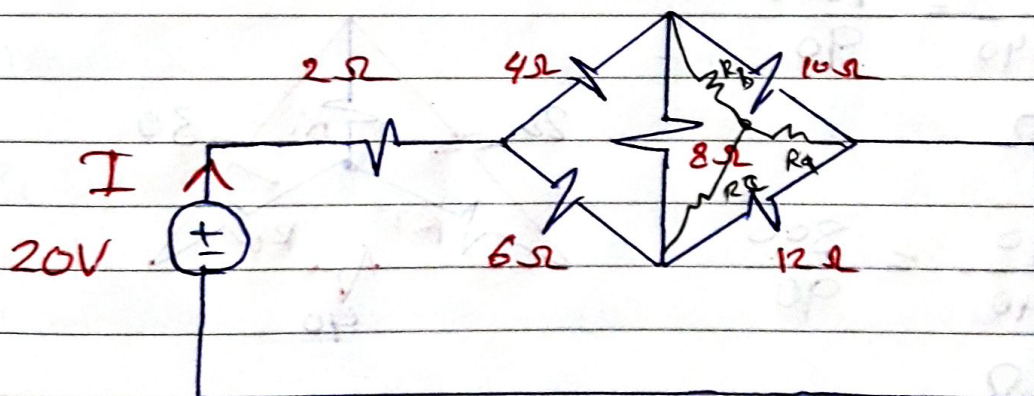 2Ω 4Ω Rb 10Ω
I 8Ω Ra
+
-
20V Rc
6Ω 12Ω